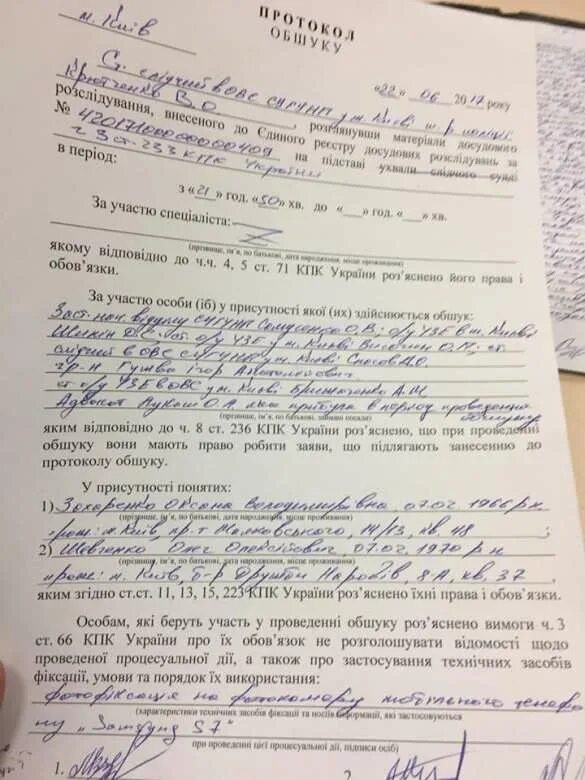 ПРОТОКОЛ
ОБШУКУ
м. Київ
«22» 06 2017 року
Ст. слідчий в ОВС СУГУНП у м. Києві
Крютченко В.О. , розглянувши матеріали досудового
розслідування, внесеного до Єдиного реєстру досудових розслідувань за
№ 42017100000000409 на підставі ухвали слідчого судді
ч 3 ст. 233 КПК України
в період:
з «21» год. «50» хв. до «___» год. «___» хв.
За участю спеціаліста:
(прізвище, ім'я, по батькові, дата народження, місце проживання)
якому відповідно до ч.ч. 4, 5 ст. 71 КПК України роз'яснено його права і
обов'язки.
За участю особи (іб) у присутності якої (их) здійснюється обшук:
Заст. нач. відділу СУГУНП О.В; о/у УЗЕ в м. Києві
Шикін ст. о/у УЗЕ у м. Києві О.М; ст.
слідчий в ОВС СУГУНП у м. Києві
гр-н Гушва Ігор Анатолійович.
ст. о/у УЗЕ в ОВС у м. Києві А.М
Адвокат Лукаш О.Л, яка прибула в період проведення
обшуку
(прізвище, ім'я, по батькові, посади)
яким відповідно до ч. 8 ст. 236 КПК України роз'яснено, що при проведенні
обшуку вони мають право робити заяви, що підлягають занесенню до
протоколу обшуку.
У присутності понятих:
1) Захаренко Оксана Володимирівна, 07.02.1966 р.н.
(прізвище, ім'я, по батькові, дата народження, місце проживання)
прож: м. Київ, пр-т Маяковського, 14/13, кв. 48 ;
2) Шевченко Олег Олексійович, 07.02.1970 р.н
(прізвище, ім'я, по батькові, дата народження, місце проживання)
прож: м. Київ, б-р Дружби Народів, 8А, кв. 37 ,
яким згідно ст.ст. 11, 13, 15, 223 КПК України роз'яснено їхні права і обов'язки.
Особам, які беруть участь у проведенні обшуку роз'яснено вимоги ч. 3
ст. 66 КПК України про їх обов'язок не розголошувати відомості щодо
проведеної процесуальної дії, а також про застосування технічних засобів
фіксації, умови та порядок їх використання:
фотофіксація на фотокамеру мобільного телефо
(характеристики технічних засобів фіксації та носіїв інформації, які застосовуються
ну „Самсунг S7"
при проведенні цієї процесуальної дії, підписи осіб)
1.
2